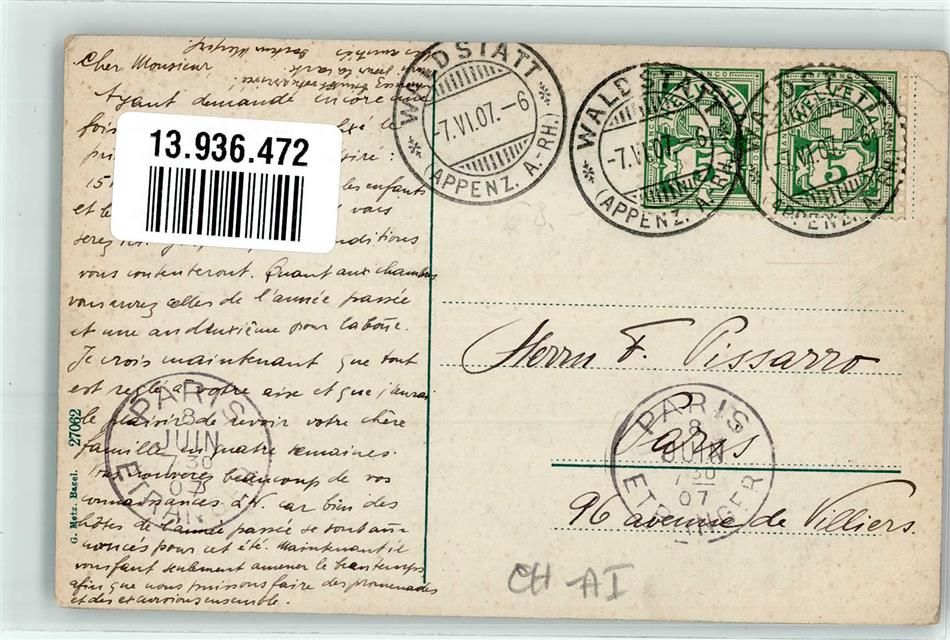 Cher Monsieur
Ayant demandé encore une
fois
13.936.472
15
les enfants
et le vous
serez conditions
vous contenteront. Quant aux chambres
vous aurez celles de l'année passée
et une au deuxième pour la bonne.
Je crois maintenant que tout
est reglé à votre aise et que j'aurai
le plaisir de revoir votre chère
famille en quatre semaines.
Vous trouverez beaucoup de vos
connaissances à W. car bien des
hôtes de l'année passée se sont an-
noncés pour cet été. Maintenant il
vous faut seulement amener le beau temps
afin que nous puissions faire des promenades
et des excursions ensemble.
G. Metz, Basel. 27062
WALDSTATT
-7.VI.07.-6
(APPENZ. A.-RH.)
WALDSTATT
-7.VI.07.-6
(APPENZ. A.-RH.)
WALDSTATT
VI.07.
(APPENZ. A.-RH.)
FRANCO
HELVETIA
5
FRANCO
HELVETIA
5
Herrn F. Pissarro
Paris
96 avenue de Villiers.
PARIS
8
JUIN
7 30
07
ETRANGER
PARIS
8
JUIN
7 30
07
ETRANGER
CH-AI